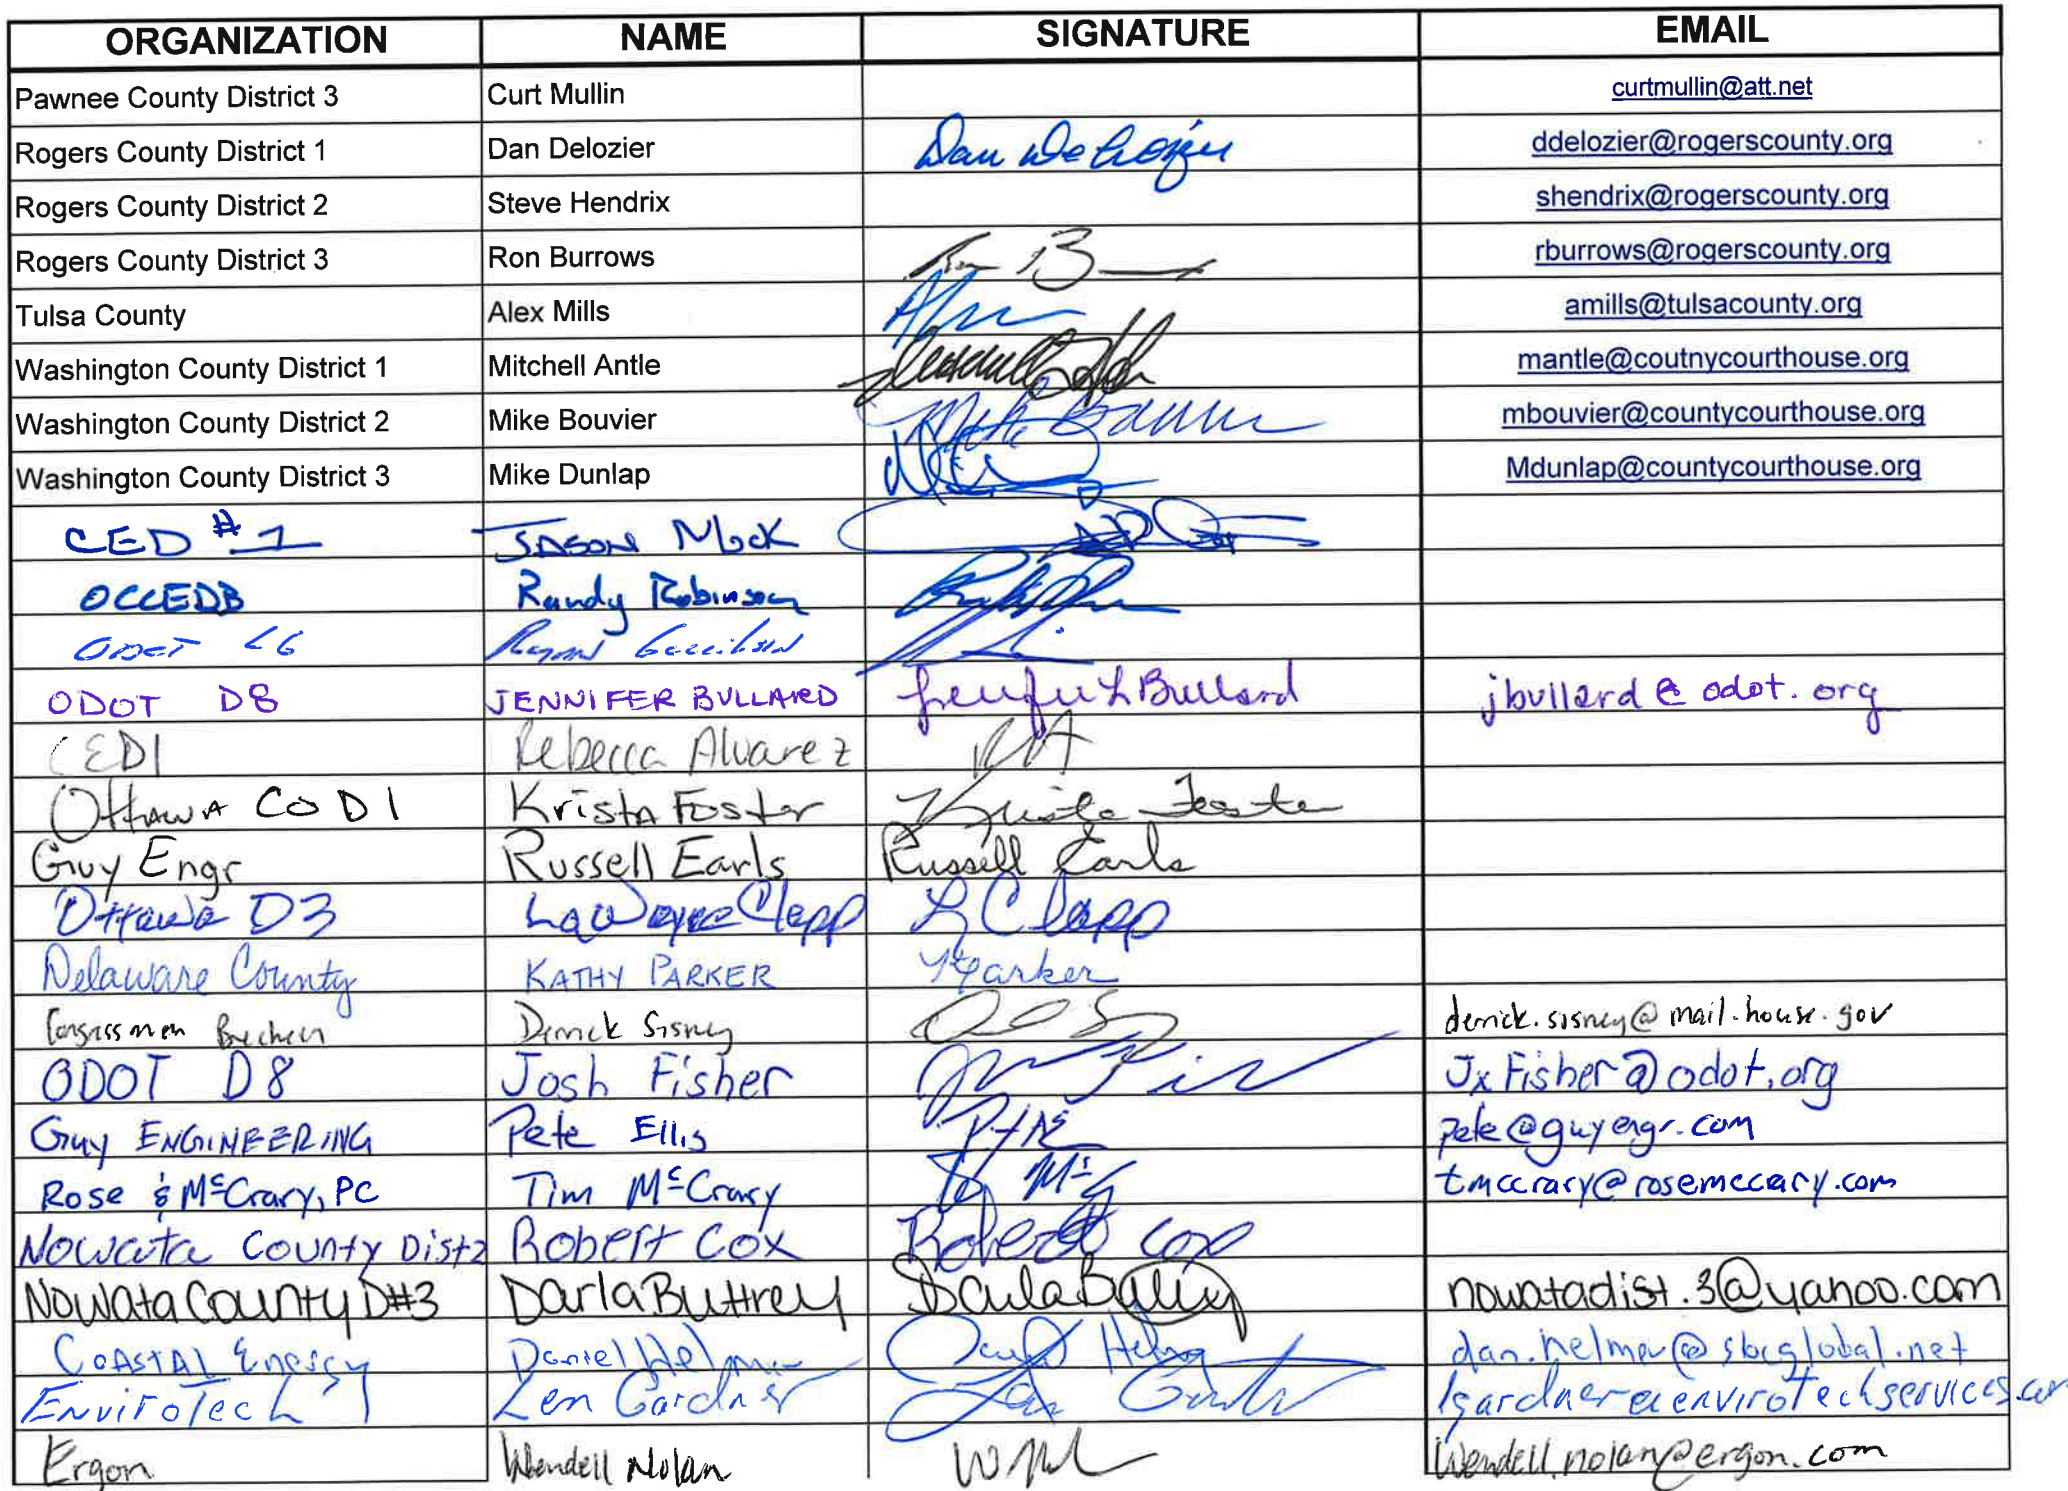 ORGANIZATION NAME SIGNATURE EMAIL
Pawnee County District 3 Curt Mullin curtmullin@att.net
Rogers County District 1 Dan Delozier Dan Delozier ddelozier@rogerscounty.org
Rogers County District 2 Steve Hendrix shendrix@rogerscounty.org
Rogers County District 3 Ron Burrows rburrows@rogerscounty.org
Tulsa County Alex Mills amills@tulsacounty.org
Washington County District 1 Mitchell Antle mantle@coutnycourthouse.org
Washington County District 2 Mike Bouvier mbouvier@countycourthouse.org
Washington County District 3 Mike Dunlap Mdunlap@countycourthouse.org
CED #1 JASON Mock
OCCEDB Randy Robinson
ODOT Ryan
ODOT D8 JENNIFER BULLARD Jennifer L Bullard jbullard@odot.org
CED1 Rebecca Alvarez RA
Ottawa CO D1 Krista Foster Krista Foster
Guy Engr Russell Earls Russell Earls
Ottawa D3 LaWayne Clapp L Clapp
Delaware County KATHY PARKER KParker
Congressmen Brecheen Derrick Sisney derrick.sisney@mail.house.gov
ODOT D8 Josh Fisher JxFisher@odot.org
Guy ENGINEERING Pete Ellis pete@guyengr.com
Rose & McCrary, PC Tim McCrary tmccrary@rosemccary.com
Nowata County Dist 2 Robert Cox Robert Cox
Nowata County D#3 Darla Buttrey nowatadist.3@yahoo.com
Coastal Energy Daniel Helmer dan.helmer@sbcglobal.net
EnviroTech Len Gardner lgardner@envirotechservices.com
Ergon Wendell Nolan Wendell.nolan@ergon.com